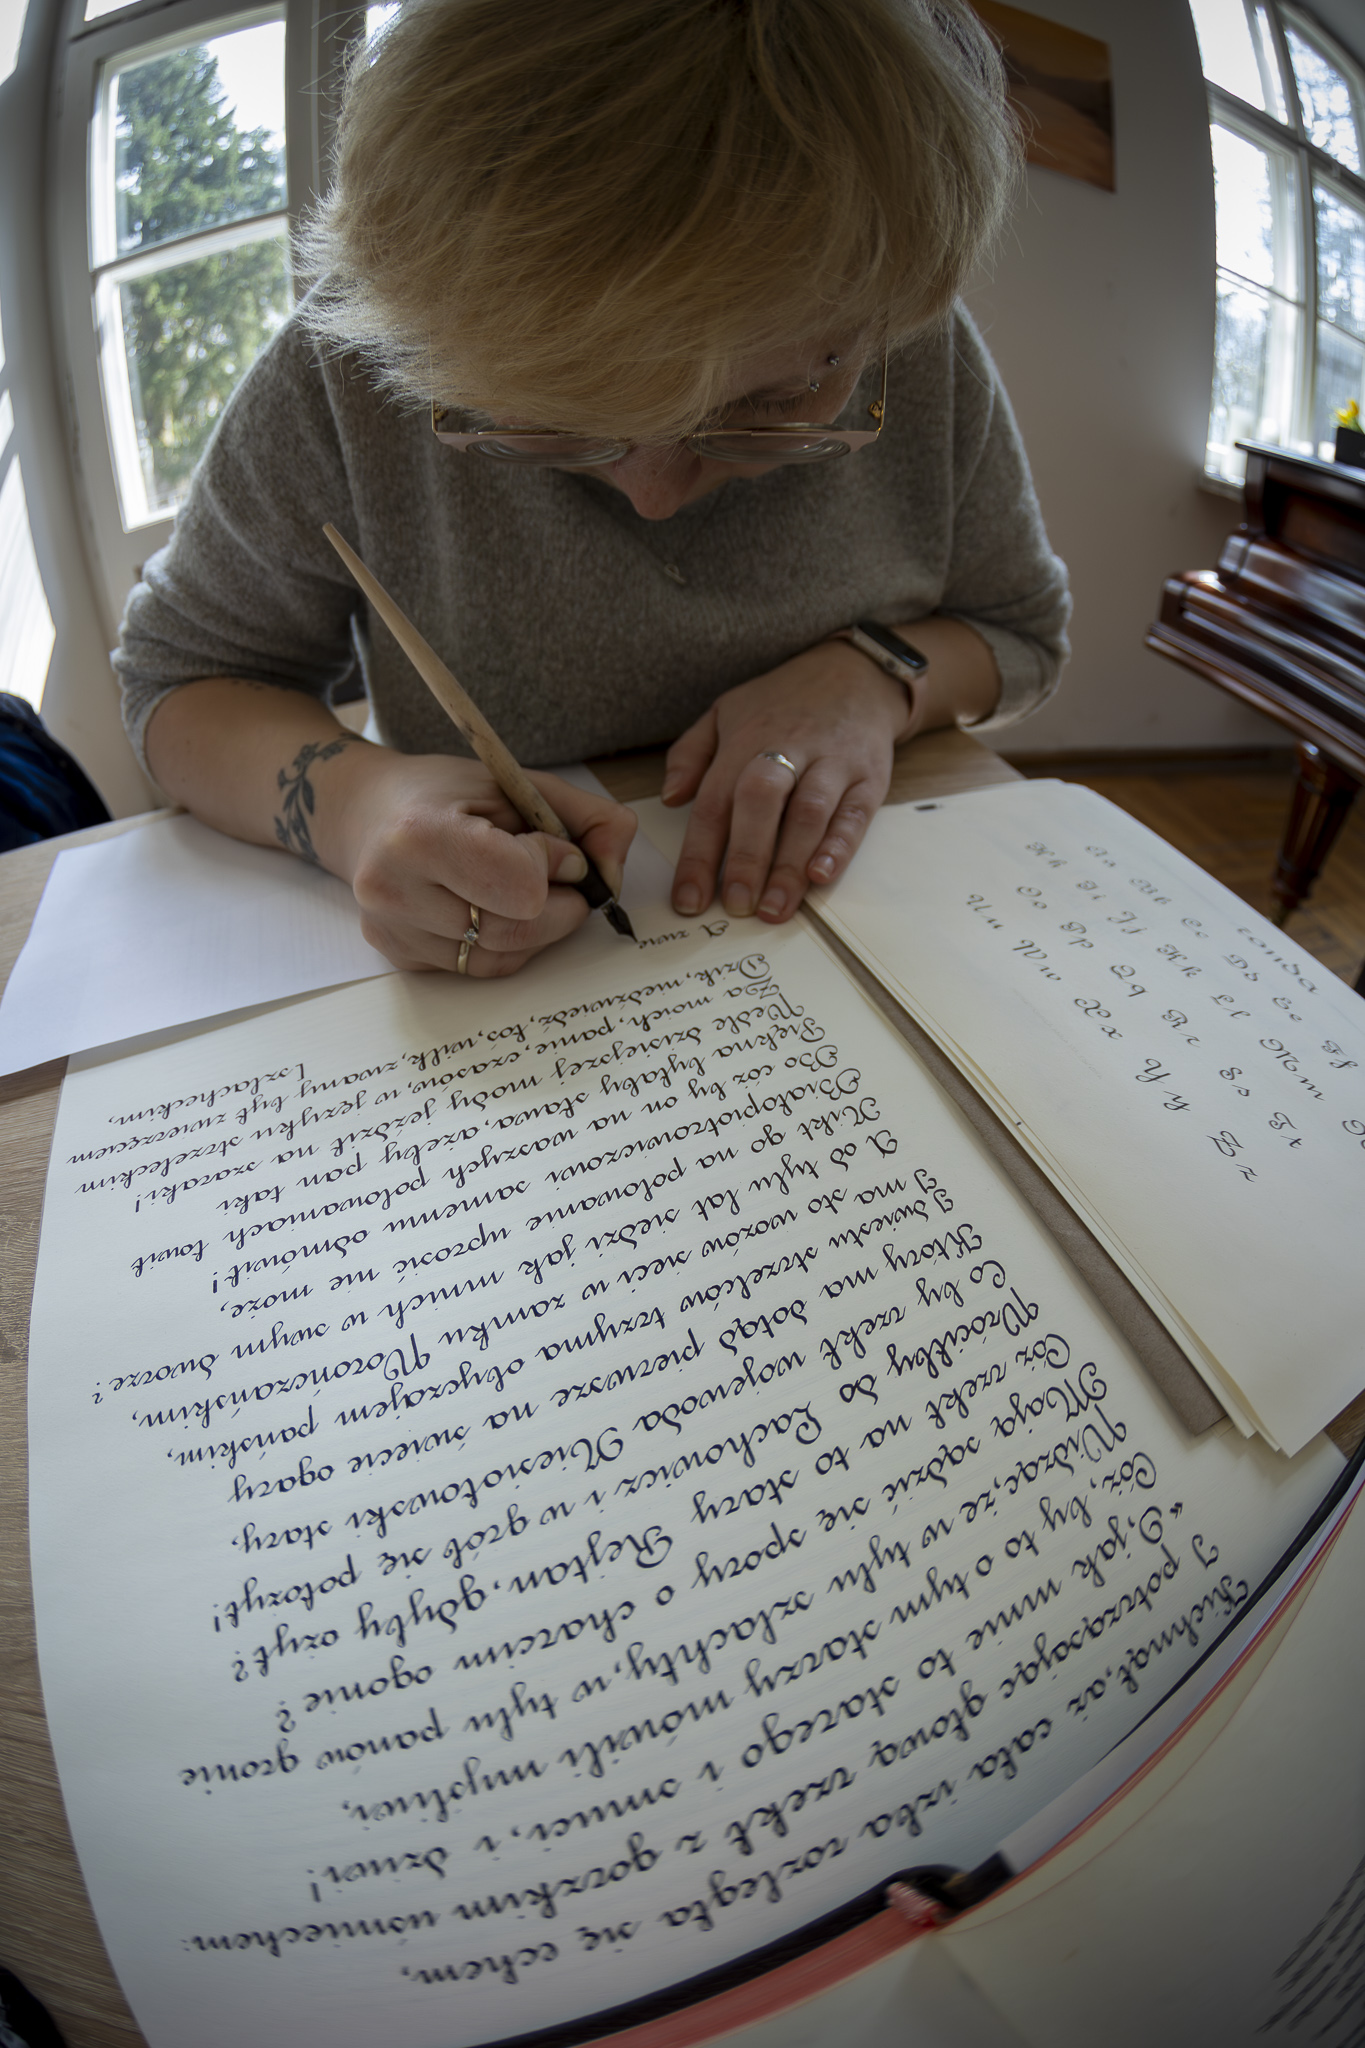 Kichnął, aż cała izba rozległa się echem,
I potrząsając głową rzekł z gorzkim uśmiechem:
"O, jak mnie to starego i smuci, i dziwi!
Cóż, by to o tym starzy mówili myśliwi,
Widząc, że w tylu szlachty, w tylu panów gronie
Mają sądzić się spory o charcim ogonie?
Cóż rzekł na to stary Rejtan, gdyby ożył?
Wróciłby do Lachowicz i w grób się położył!
Co by rzekł wojewoda Niesiołowski stary,
Który ma dotąd pierwsze na świecie ogary
I dwiestu strzelców trzyma obyczajem pańskim,
I ma sto wozów sieci w zamku Worończańskim,
A od tylu lat siedzi jak mnich w swym dworze?
Nikt go na polowanie uprosić nie może,
Białopiotrowiczowi samemu odmówił!
Bo cóż by on na waszych polowaniach łowił
Piękna byłaby sława, ażeby pan taki
Wedle dzisiejszej mody jeździł na szaraki!
Za moich, panie, czasów, w języku strzeleckim
Dzik, niedźwiedź, łoś, wilk, zwany był zwierzęciem
[szlacheckim,
A zwie
ronda
Aa Bb Cc Dd Ee Ff
Hh Ii Jj Kk Ll Mm
Oo Pp Qq Rr Ss Tt
Uu Ww Xx Yy Zz